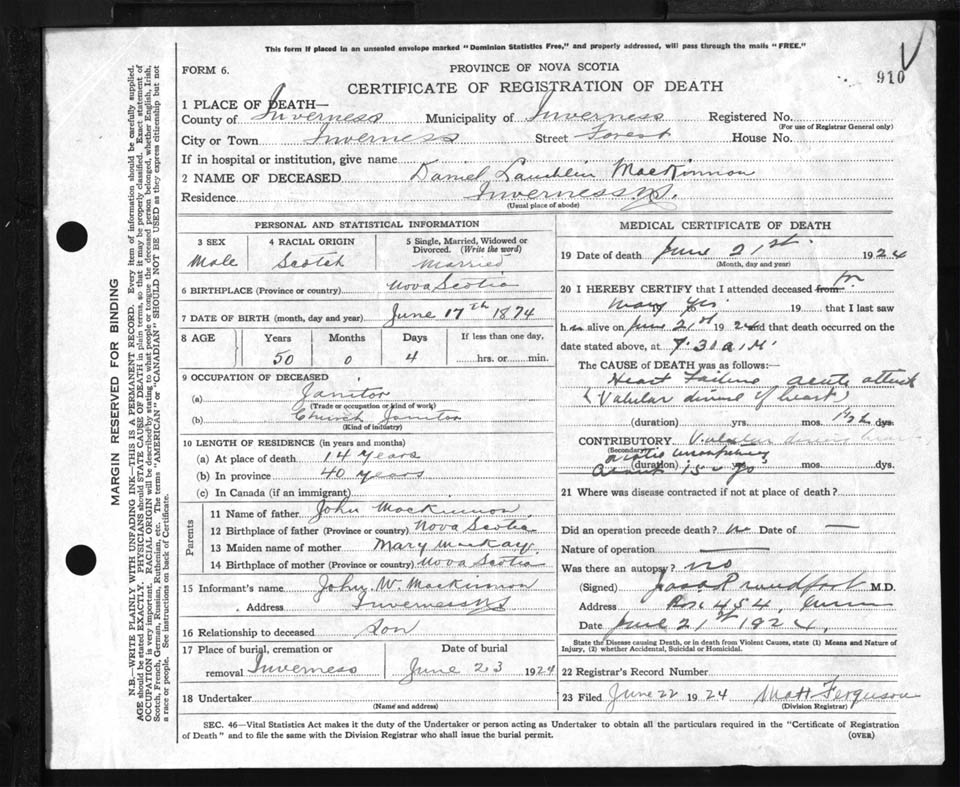 This form if placed in an unsealed envelope marked "Dominion Statistics Free," and properly addressed, will pass through the mails "FREE."
FORM 6.
PROVINCE OF NOVA SCOTIA
910
CERTIFICATE OF REGISTRATION OF DEATH
1 PLACE OF DEATH—
County of Inverness Municipality of Inverness Registered No.
(For use of Registrar General only)
City or Town Inverness Street Forest House No.
If in hospital or institution, give name
2 NAME OF DECEASED Daniel Lauchlin MacKinnon
Residence Inverness N.S.
(Usual place of abode)
PERSONAL AND STATISTICAL INFORMATION
3 SEX 4 RACIAL ORIGIN 5 Single, Married, Widowed or Divorced. (Write the word)
Male Scotch Married
6 BIRTHPLACE (Province or country) Nova Scotia
7 DATE OF BIRTH (month, day and year) June 17th 1874
8 AGE Years Months Days If less than one day,
50 0 4 hrs. or min.
9 OCCUPATION OF DECEASED
(a) Janitor
(Trade or occupation or kind of work)
(b) Church Janitor
(Kind of industry)
10 LENGTH OF RESIDENCE (in years and months)
(a) At place of death 14 years
(b) In province 40 years
(c) In Canada (if an immigrant)
Parents
11 Name of father John MacKinnon
12 Birthplace of father (Province or country) Nova Scotia
13 Maiden name of mother Mary MacKay
14 Birthplace of mother (Province or country) Nova Scotia
15 Informant's name John W. MacKinnon
Address Inverness NS
16 Relationship to deceased Son
17 Place of burial, cremation or removal Inverness Date of burial June 23 1924
18 Undertaker
(Name and address)
MEDICAL CERTIFICATE OF DEATH
19 Date of death June 21st. 1924
(Month, day and year)
20 I HEREBY CERTIFY that I attended deceased from for
many yrs 19 that I last saw
him alive on June 21st 1924 and that death occurred on the
date stated above, at 7.30 a.m.
The CAUSE OF DEATH was as follows:—
Heart Failure acute attack
(Valvular disease of heart)
(duration) yrs. mos. dys.
CONTRIBUTORY Valvular disease heart
(Secondary)
(duration) 15 yrs. mos. dys.
21 Where was disease contracted if not at place of death?
Did an operation precede death? No Date of —
Nature of operation —
Was there an autopsy? no
(Signed) M.D.
Address Box 454,
Date June 21st 1924.
State the Disease causing Death, or in death from Violent Causes, state (1) Means and Nature of Injury, (2) whether Accidental, Suicidal or Homicidal.
22 Registrar's Record Number
23 Filed June 22 1924 Matt Ferguson
(Division Registrar)
SEC. 46—Vital Statistics Act makes it the duty of the Undertaker or person acting as Undertaker to obtain all the particulars required in the "Certificate of Registration
of Death" and to file the same with the Division Registrar who shall issue the burial permit.
(OVER)
MARGIN RESERVED FOR BINDING
N.B.—WRITE PLAINLY WITH UNFADING INK—THIS IS A PERMANENT RECORD. Every item of information should be carefully supplied.
AGE should be stated EXACTLY. PHYSICIANS should STATE CAUSE OF DEATH in plain terms, so that it may be properly classified. Exact statement of
OCCUPATION is very important. RACIAL ORIGIN will be described by stating to what people or tongue the deceased person belonged, whether English, Irish,
Scotch, French, German, Russian, Ruthenian, etc. The terms "AMERICAN" or "CANADIAN" SHOULD NOT BE USED as they express citizenship but not
a race or people. See instructions on back of Certificate.